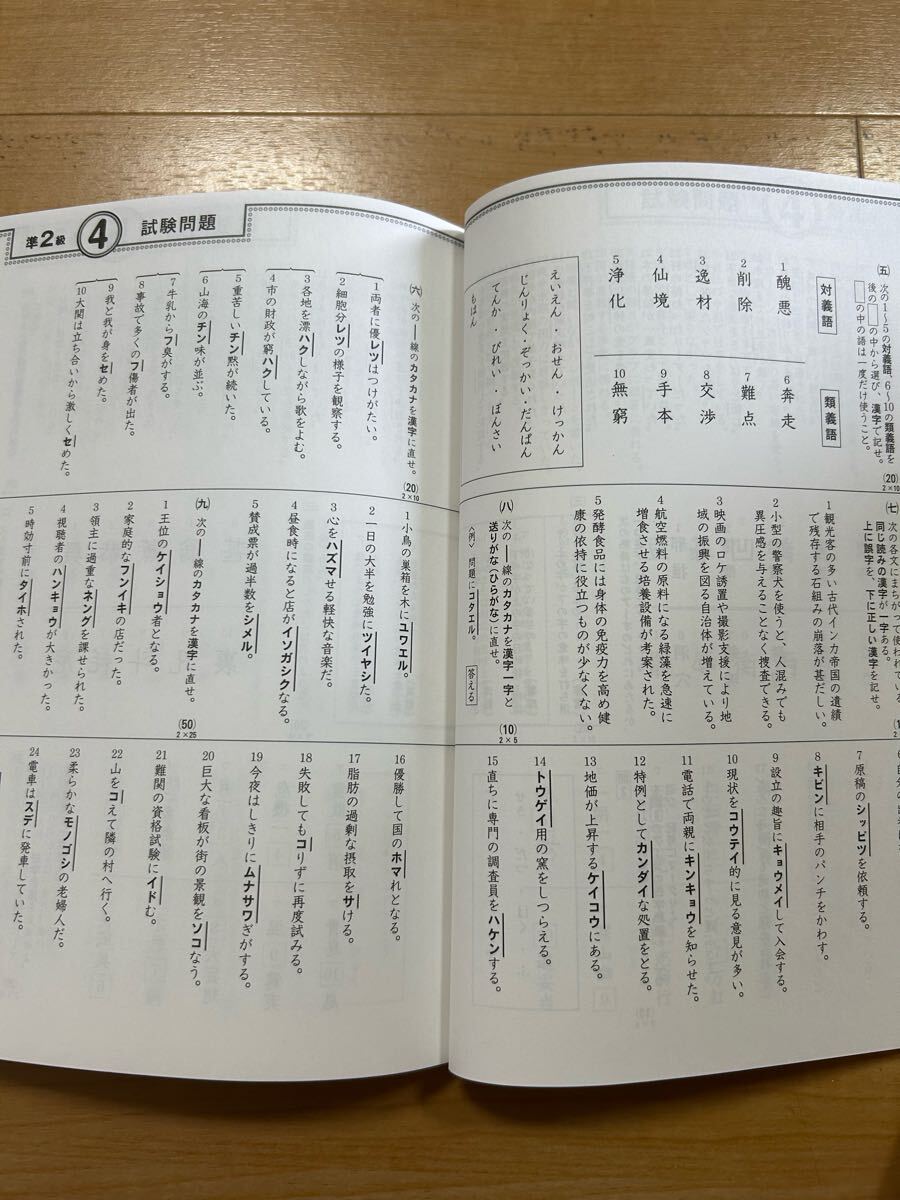 準2級 4 試験問題
(五) 次の1～5の対義語、6～10の類義語を
後の□の中から選び、漢字で記せ。
□の中の語は一度だけ使うこと。
(20)
2×10
対義語
1 醜悪
2 削除
3 逸材
4 仙境
5 浄化
類義語
6 奔走
7 難点
8 交渉
9 手本
10 無窮
えいえん・おせん・けっかん
じんりょく・ぞっかい・だんぱん
てんか・びれい・ぼんさい
もはん
(六) 次の―線のカタカナを漢字に直せ。
(20)
2×10
1 両者に優レツはつけがたい。
2 細胞分レツの様子を観察する。
3 各地を漂ハクしながら歌をよむ。
4 市の財政が窮ハクしている。
5 重苦しいチン黙が続いた。
6 山海のチン味が並ぶ。
7 牛乳からフ臭がする。
8 事故で多くのフ傷者が出た。
9 我と我が身をセめた。
10 大関は立ち合いから激しくセめた。
(七) 次の各文にまちがって使われている
同じ読みの漢字が一字ある。
上に誤字を、下に正しい漢字を記せ。
1 観光客の多い古代インカ帝国の遺績
で残存する石組みの崩落が甚だしい。
2 小型の警察犬を使うと、人混みでも
異圧感を与えることなく捜査できる。
3 映画のロケ誘置や撮影支援により地
域の振興を図る自治体が増えている。
4 航空燃料の原料になる緑藻を急速に
増食させる培養設備が考案された。
5 発酵食品には身体の免疫力を高め健
康の依持に役立つものが少なくない。
(八) 次の―線のカタカナを漢字一字と
送りがな(ひらがな)に直せ。
〈例〉問題にコタエル。 答える
(10)
2×5
1 小鳥の巣箱を木にユワエル。
2 一日の大半を勉強にツイヤシた。
3 心をハズマせる軽快な音楽だ。
4 昼食時になると店がイソガシクなる。
5 賛成票が過半数をシメル。
(九) 次の―線のカタカナを漢字に直せ。
(50)
2×25
1 王位のケイショウ者となる。
2 家庭的なフンイキの店だった。
3 領主に過重なネングを課せられた。
4 視聴者のハンキョウが大きかった。
5 時効寸前にタイホされた。
7 原稿のシッピツを依頼する。
8 キビンに相手のパンチをかわす。
9 設立の趣旨にキョウメイして入会する。
10 現状をコウテイ的に見る意見が多い。
11 電話で両親にキンキョウを知らせた。
12 特例としてカンダイな処置をとる。
13 地価が上昇するケイコウにある。
14 トウゲイ用の窯をしつらえる。
15 直ちに専門の調査員をハケンする。
16 優勝して国のホマれとなる。
17 脂肪の過剰な摂取をサける。
18 失敗してもコりずに再度試みる。
19 今夜はしきりにムナサワぎがする。
20 巨大な看板が街の景観をソコなう。
21 難関の資格試験にイドむ。
22 山をコえて隣の村へ行く。
23 柔らかなモノゴシの老婦人だ。
24 電車はスデに発車していた。